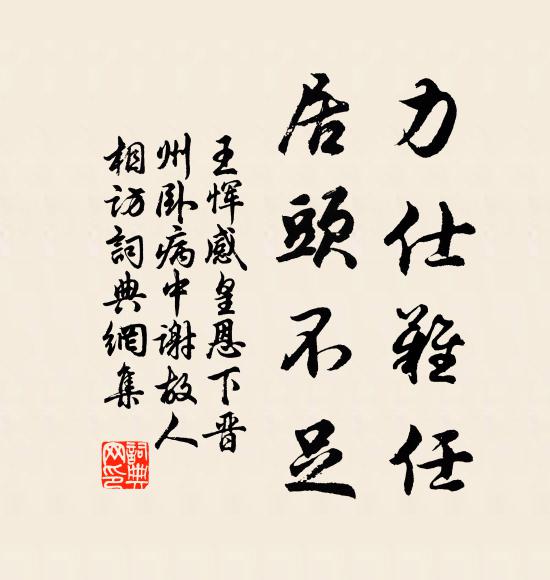 力仕難任
居頭不足
王惲感皇恩下晋
州卧病中謝故人
相访詞典網集
詞典
网印